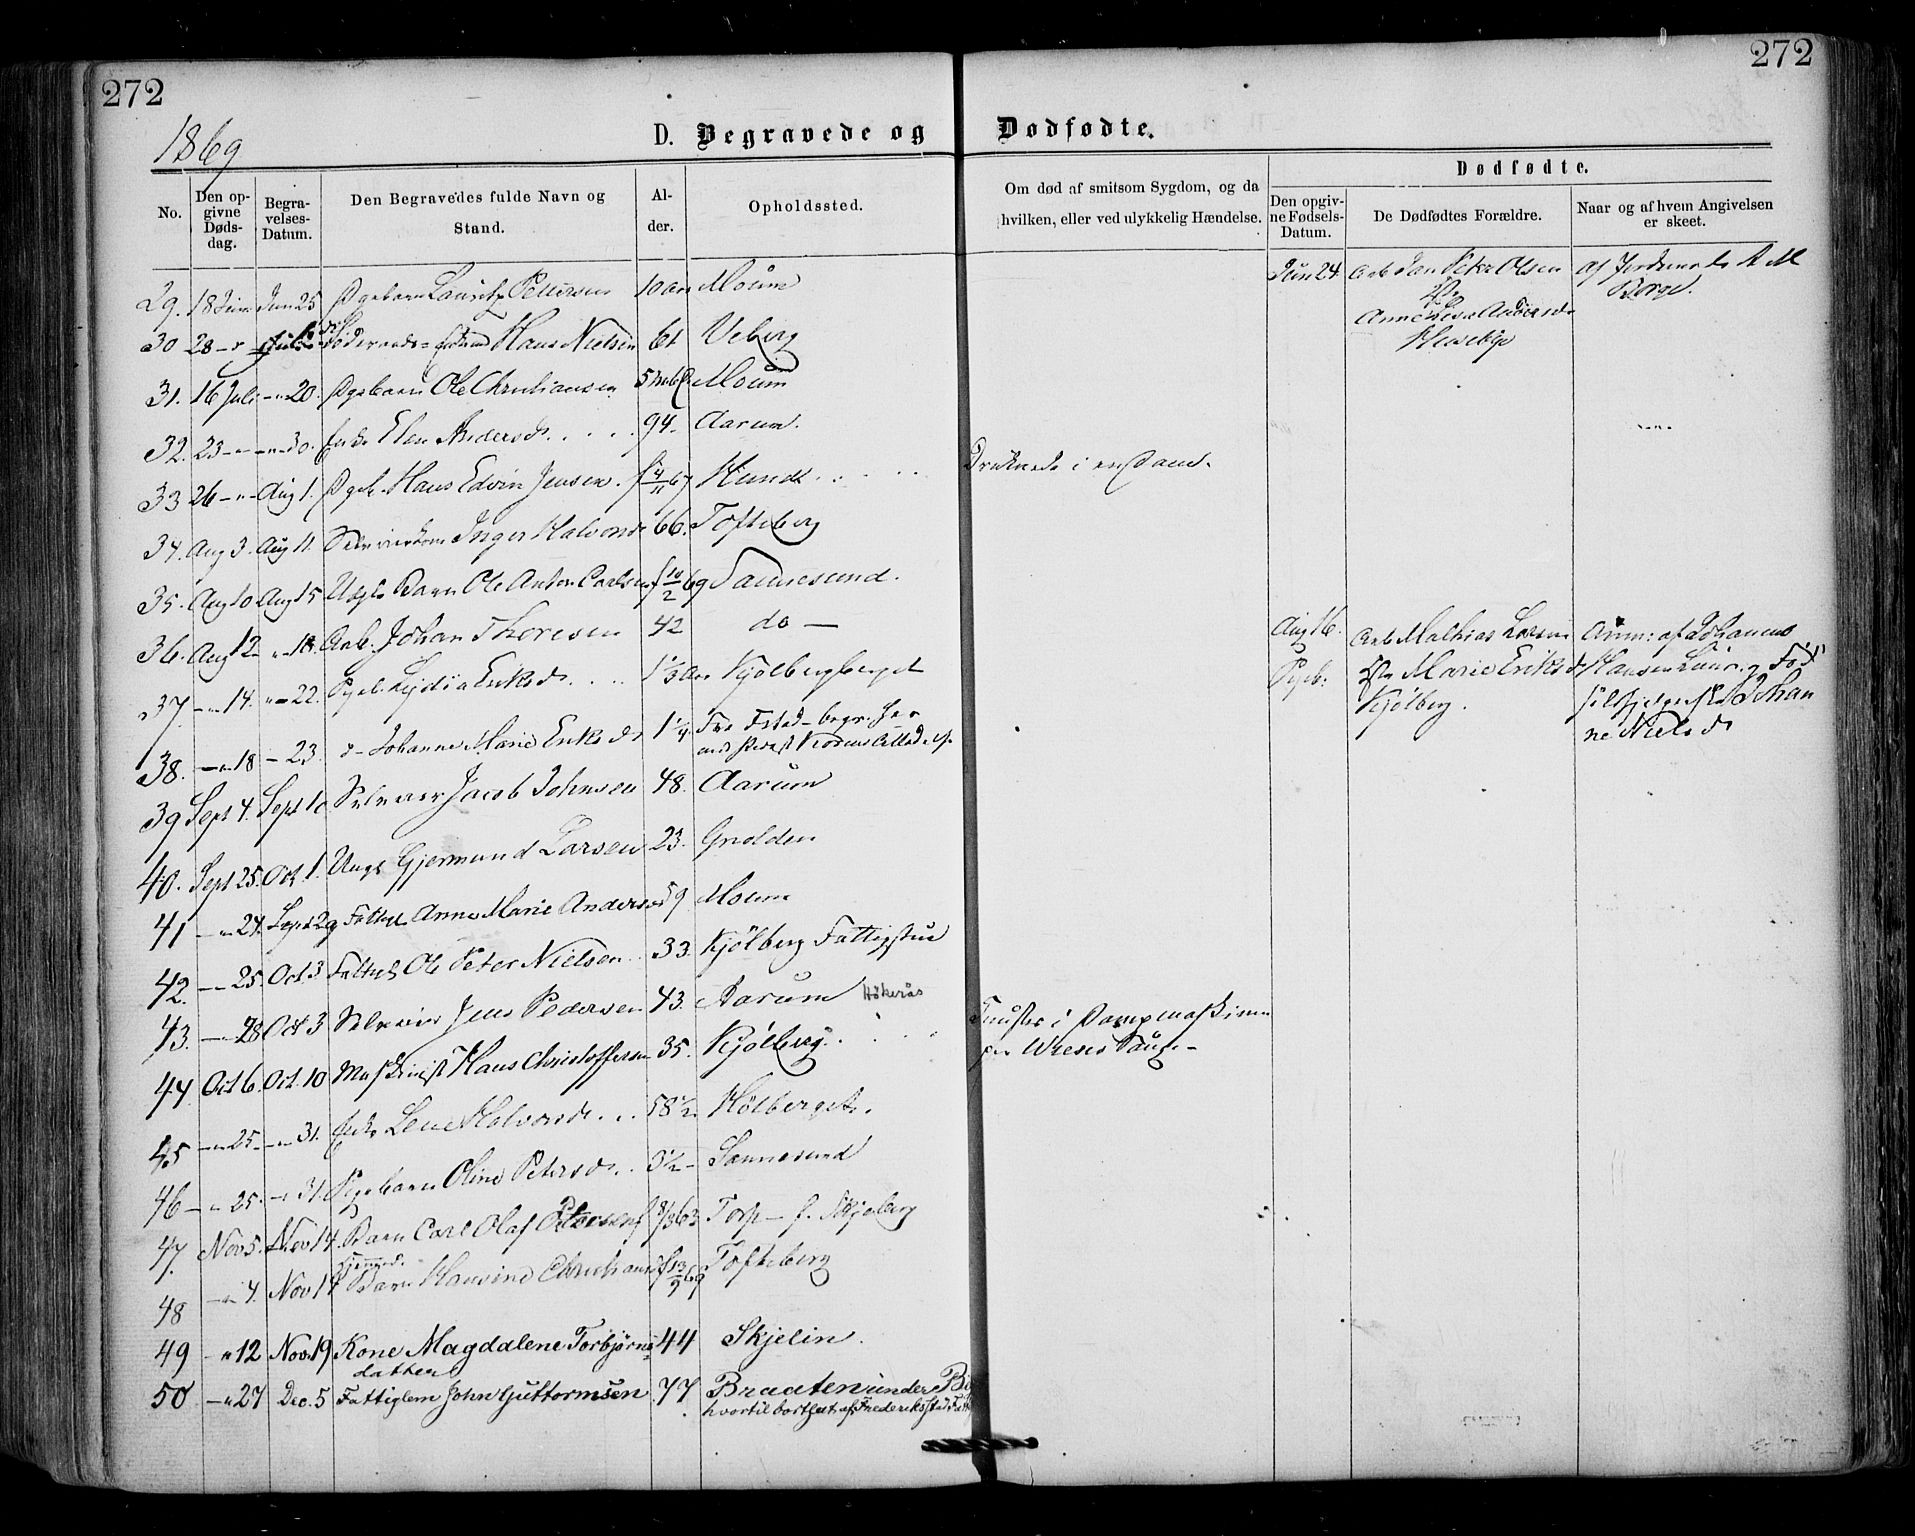 272
272
1869
D. Begravede og Dødfødte.
No.
Den opgivne Dødsdag.
Begravelses-Datum.
Den Begravedes fulde Navn og Stand.
Alder.
Opholdssted.
Om død af smitsom Sygdom, og da hvilken, eller ved ulykkelig Hændelse.
Dødfødte.
Den opgivne Fødsels-Datum.
De Dødfødtes Forældre.
Naar og af hvem Angivelsen er skeet.
29. 18 Juni Juni 25 Pgebarn Lauritz Pettersen 10 Moum
Jun 24 Arb Jan Peter Olsen
af Jordemoder A M Borge.
Husebye
30 28 Juli Hans Nielsen 61 Veberg
31. 16 Juli 20. Pgebarn Ole Christiansen Moum
32. 23 30. Enke Elen Andersd. 94. Aarum.
33 26 Aug 1. Pgeb. Hans Edvin Jensen. f 4/11 67 Hunde
Druknede i en Dam.
34. Aug 3. Aug 11. Inger Halvorsd 66. Tofteberg
35. Aug 10 Aug 15 Uægte Barn Ole Anton Carlsen f 10/2 69 Sannesund.
36. Aug 12 18. Arb. Johan Thoresen 42 do
Aug 16. Arb Mathias Larsen
Anm: af Johannes
37 14. 22. Pgeb Lydia Eriksd. 1½ Kjølbergberget
Pgeb: Marie Eriksd Kjølberg.
Hansen
Johanne Nielsd
38. 18 23. Johanne Marie Eriksd 1¼ Fra Fstad begr. her
39 Sept 4. Sept 10 Selveier Jacob Johnsen 48. Aarum
40. Sept 25. Oct. 1. Ungk Gjermund Larsen 23. Gnolden
41 24. Sept 29 Fattigl Anne Marie Andersd 59 Moum
42. 25. Oct. 3 Fattigl Ole Peter Nielsen 33. Kjølberg Fattigstue
43. 28 Oct 3 Selveier Jens Pedersen 43. Aarum Håkerås
44 Oct 6. Oct. 10 Maskinist Hans Christoffersen 35. Kjølberg.
Knustes i Dampmaskinen
paa Wieses Saug
45 25 31. Enke Lene Halvorsd. 58½ Holberget.
46 25. 31. Pgebarn Oline Petersd. 3½ Sannesund
47. Nov 5. Nov 14. Barn Carl Olaf Petersen f 8/3 63 Torp f. Skjeberg
48 7. Nov 14 Barn Hansine Christiansd f 13/9 69 Tofteberg
49 12 Nov. 19 Kone Magdalene Torbjørns= 44 Skjelin
datter
50 27 Dec. 5 Fattiglem John Guttormsen 77 Braaten under
hvortil bortsat af Frederiksstad